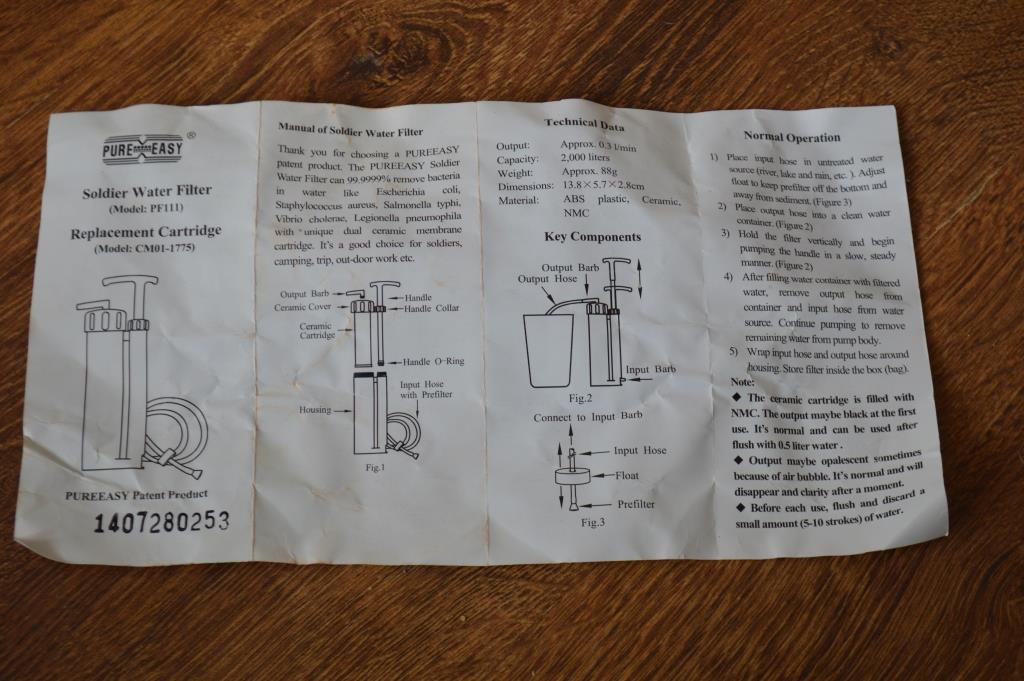 PUREEASY®
Soldier Water Filter
(Model: PF111)
Replacement Cartridge
(Model: CM01-1775)
PUREEASY Patent Product
1407280253
Manual of Soldier Water Filter
Thank you for choosing a PUREEASY
patent product. The PUREEASY Soldier
Water Filter can 99.9999% remove bacteria
in water like Escherichia coli,
Staphylococcus aureus, Salmonella typhi,
Vibrio cholerae, Legionella pneumophila
with unique dual ceramic membrane
cartridge. It's a good choice for soldiers,
camping, trip, out-door work etc.
Output Barb
Handle
Ceramic Cover
Handle Collar
Ceramic
Cartridge
Handle O-Ring
Input Hose
with Prefilter
Housing
Fig.1
Technical Data
Output: Approx. 0.3 l/min
Capacity: 2,000 liters
Weight: Approx. 88g
Dimensions: 13.8×5.7×2.8cm
Material: ABS plastic, Ceramic,
NMC
Key Components
Output Barb
Output Hose
Input Barb
Fig.2
Connect to Input Barb
Input Hose
Float
Prefilter
Fig.3
Normal Operation
1) Place input hose in untreated water
source (river, lake and rain, etc. ). Adjust
float to keep prefilter off the bottom and
away from sediment. (Figure 3)
2) Place output hose into a clean water
container. (Figure 2)
3) Hold the filter vertically and begin
pumping the handle in a slow, steady
manner. (Figure 2)
4) After filling water container with filtered
water, remove output hose from
container and input hose from water
source. Continue pumping to remove
remaining water from pump body.
5) Wrap input hose and output hose around
housing. Store filter inside the box (bag).
Note:
◆ The ceramic cartridge is filled with
NMC. The output maybe black at the first
use. It's normal and can be used after
flush with 0.5 liter water .
◆ Output maybe opalescent sometimes
because of air bubble. It's normal and will
disappear and clarity after a moment.
◆ Before each use, flush and discard a
small amount (5-10 strokes) of water.